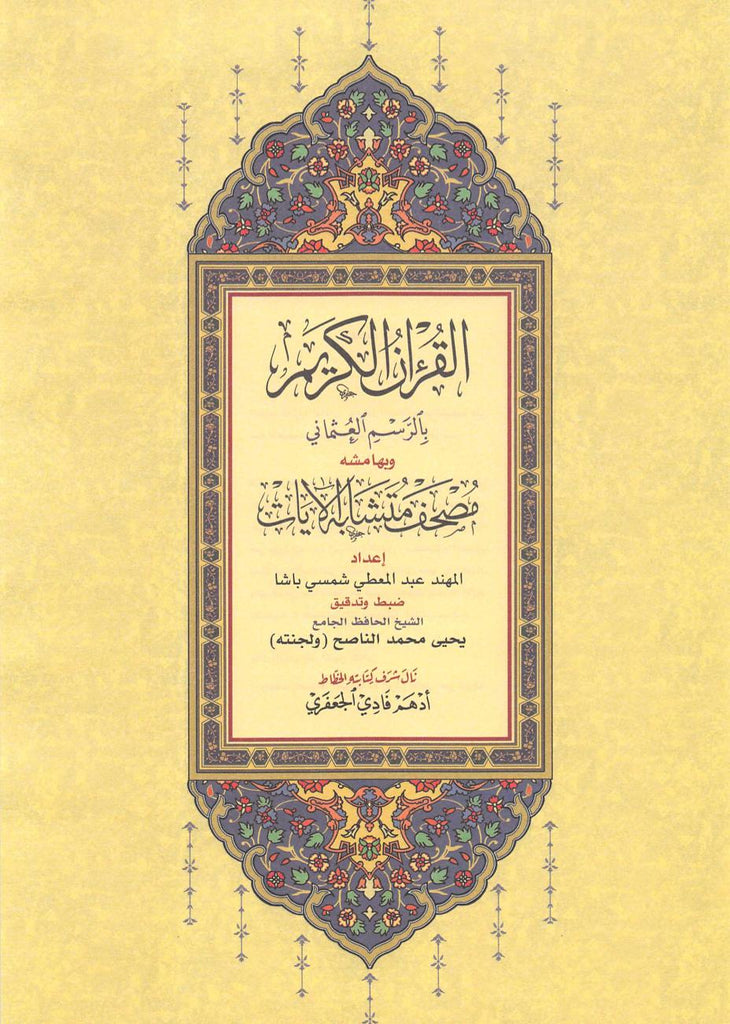 القُرْءَانُ الكَرِيمُ
بِالرَّسْمِ العُثْمَاني
وبهامشه
مُصْحَفُ مُتَشَابِهِ الآيَاتِ
إعداد
المهند عبد المعطي شمسي باشا
ضبط وتدقيق
الشيخ الحافظ الجامع
يحيى محمد الناصح (ولجنته)
نَالَ شَرَفَ كِتَابَتِهِ الخَطَّاط
أَدْهَمْ فَادِيْ الجَعْفَرِيْ